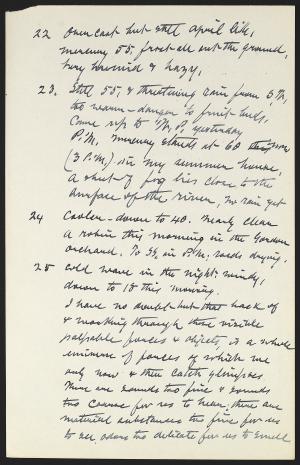 22 Overcast but still april like,
mercury 55, frost all out the ground,
very humid & hazy,
23. Still 55, & threatening rain from S.W,
too warm - danger to fruit buds,
Came up to W. P. yesterday
P.M, mercury stands at 60
(3 P.M.) in my summer house,
a sheet of fog lies close to the
surface of the river, no rain yet
24 Cooler - down to 40. nearly clear
a robin this morning in the Gordon
orchard. To 54 in P.M. roads drying.
25 Cold wave in the night: windy,
down to 18 this morning.
I have no doubt but that back of
& working through these visible
palpable forces & objects, is a whole
universe of forces of which we
only now & then catch glimpses
There are sounds too fine & sounds
too coarse for us to hear, there are
material substances too fine for us
to see, odors too delicate for us to smell